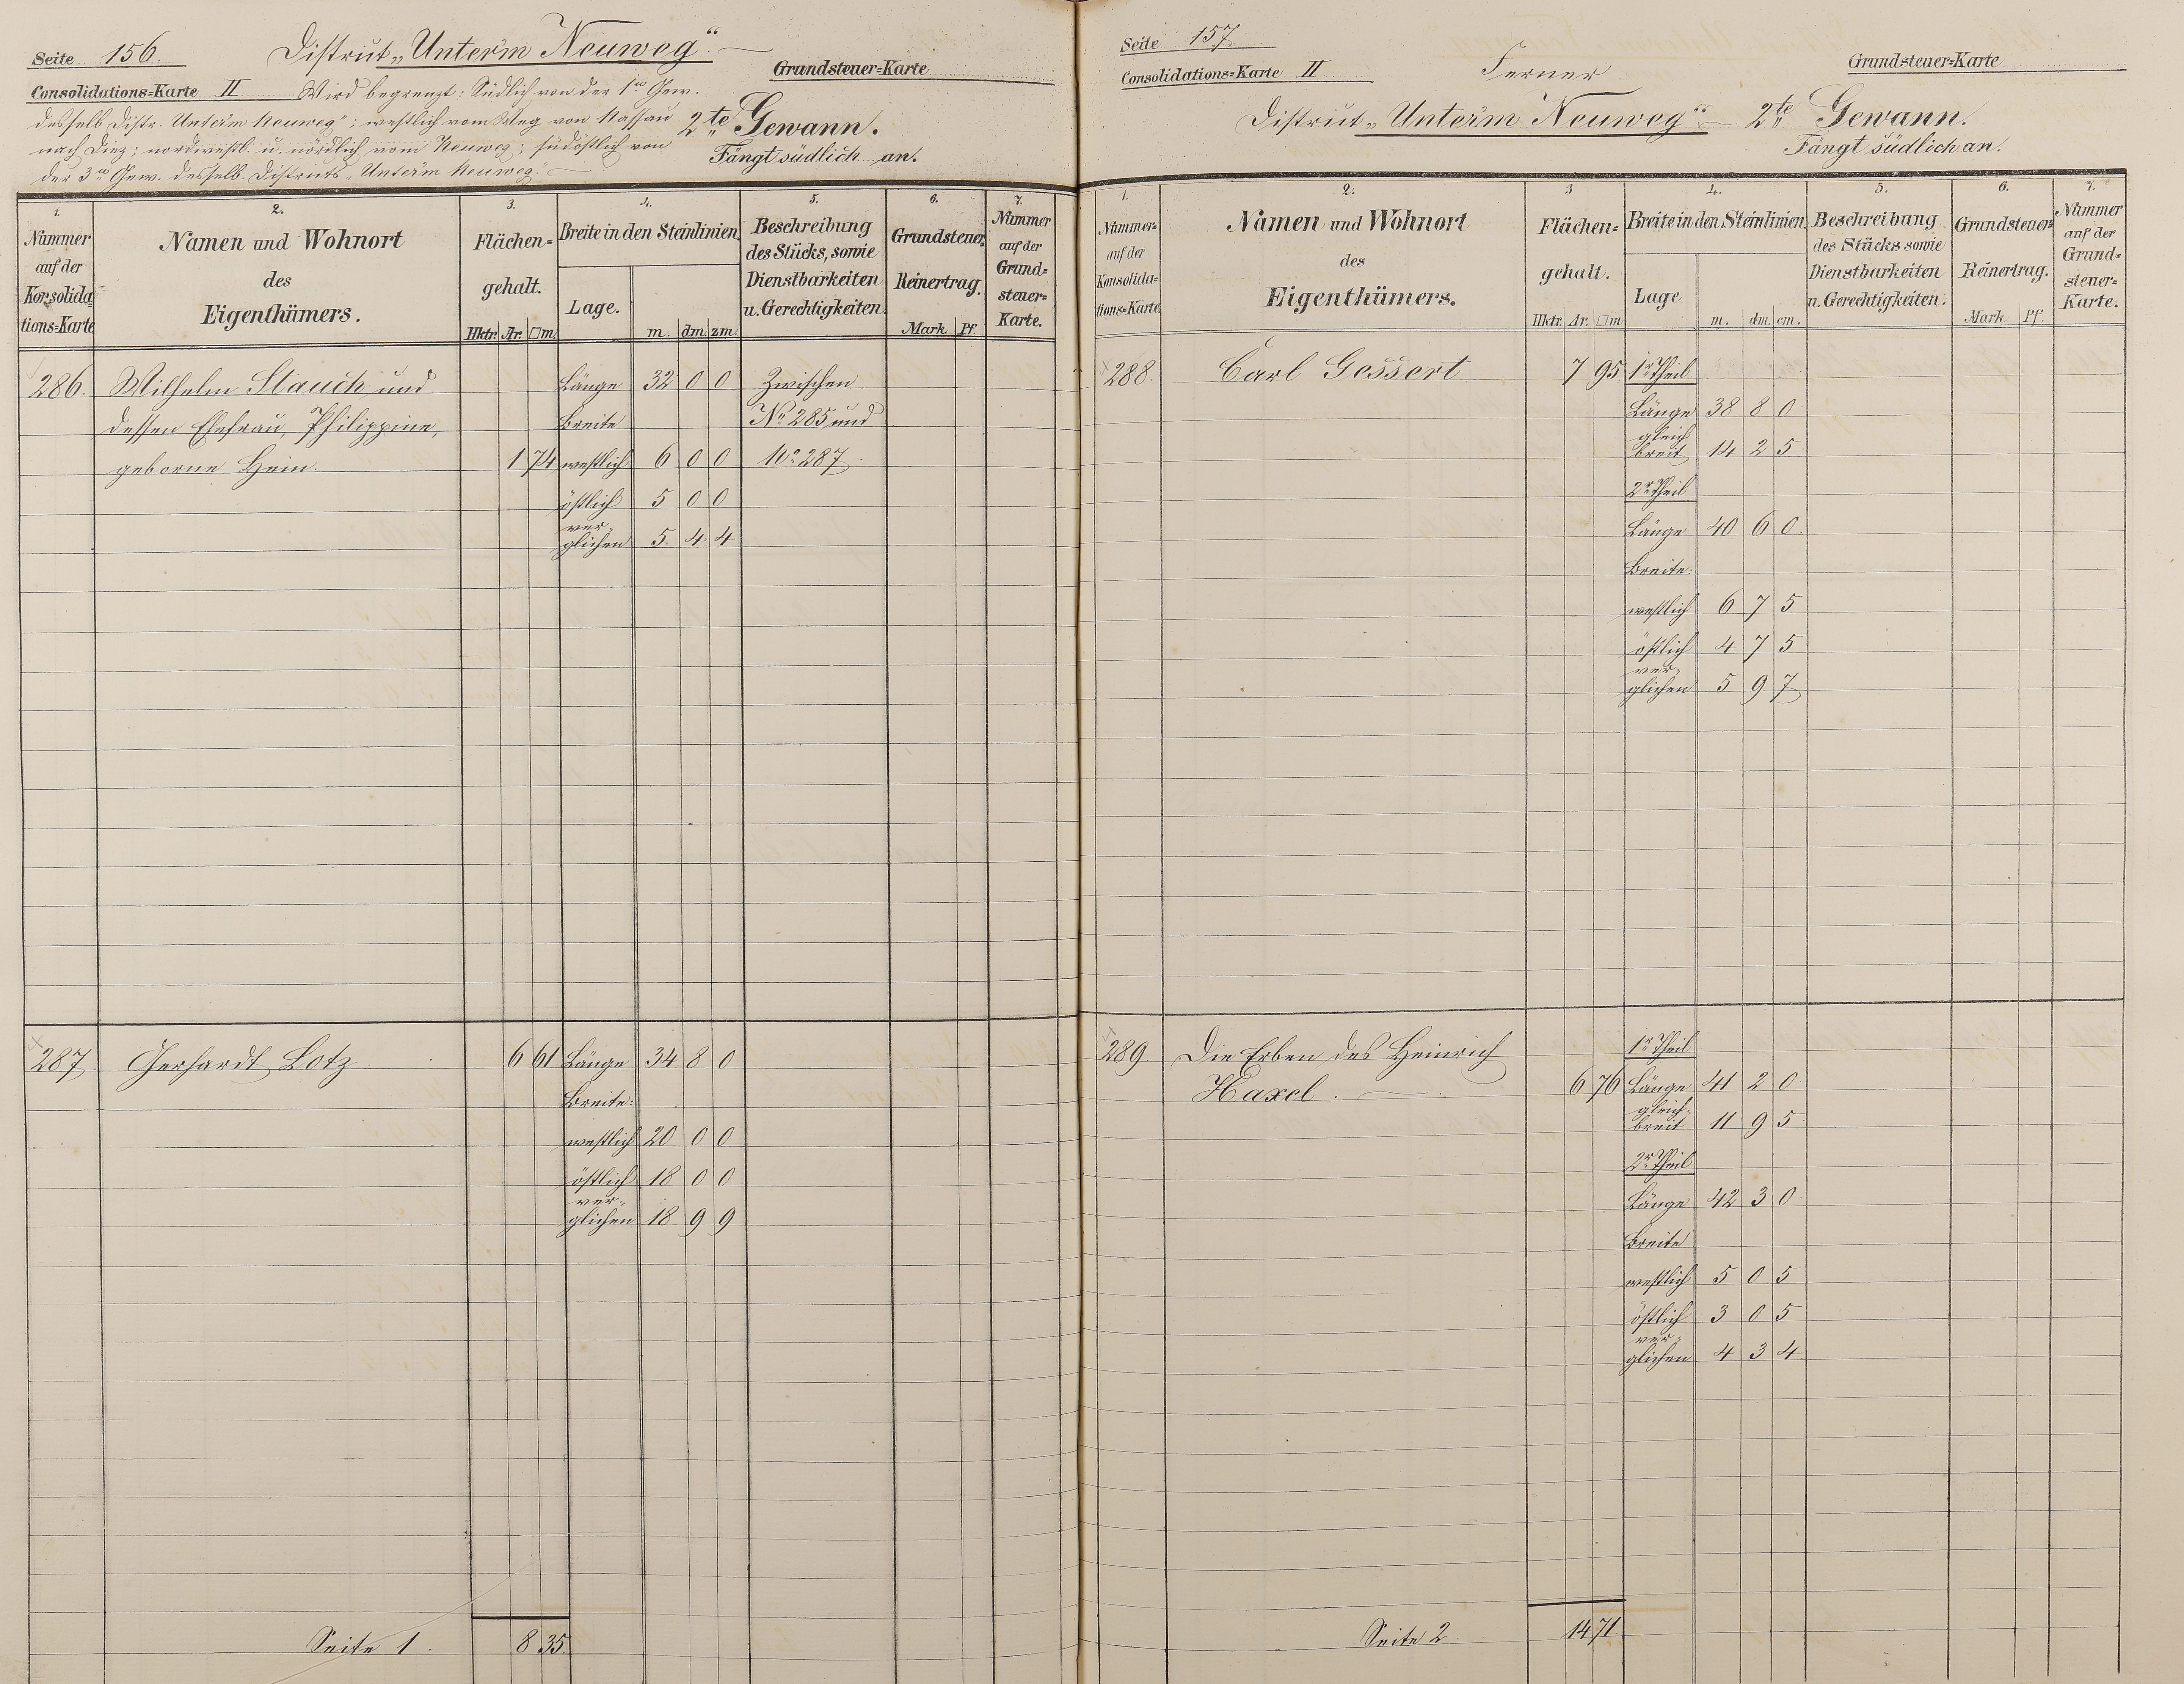 Seite 156.
Distrikt „Unter'm Neuweg".
Grundsteuer=Karte
Consolidations=Karte II
Wird begrenzt: Südlich von der 1ten Gew.
desselb. Distr. Unterm Neuweg"; westlich vom Weg von Nassau
nach Diez; nordwestl. u. nördlich vom Neuweg; südöstlich von
der 3ten Gew. desselb. Distrikts „Unterm Neuweg.
2te Gewann.
Fängt südlich an.
1. 2. 3. 4. 5. 6. 7.
Nummer auf der Konsolida=tions=Karte
Namen und Wohnort
des
Eigenthümers.
Flächen=
gehalt.
Hktr. Ar. □m.
Breite in den Steinlinien.
Lage.
m. dm. zm.
Beschreibung
des Stücks, sowie
Dienstbarkeiten
u. Gerechtigkeiten.
Grundsteuer
Reinertrag.
Mark Pf.
Nummer
auf der
Grund=
steuer=
Karte.
286. Wilhelm Stauch und Länge 32 0 0 Zwischen
dessen Ehefrau, Philippine, Breite No 285 und
geborne Hein. 1 74 westlich 6 0 0 No 287.
östlich 5 0 0
ver=
glichen 5 4 4
287 Gerhardt Lotz 6 61 Länge 34 8 0
Breite:
westlich 20 0 0
östlich 18 0 0
ver=
glichen 18 9 9
Seite 1. 8 35.
Seite 157
Consolidations=Karte II
Ferner
Grundsteuer=Karte
Distrikt „Unter'm Neuweg" 2te Gewann.
Fängt südlich an.
1. 2. 3 4. 5. 6. 7.
Nummer=
auf der
Konsolida=
tions=Karte
Namen und Wohnort
des
Eigenthümers.
Flächen=
gehalt.
Hktr. Ar. □m
Breite in den Steinlinien.
Lage
m. dm. cm.
Beschreibung
des Stücks sowie
Dienstbarkeiten
u. Gerechtigkeiten.
Grundsteuer=
Reinertrag.
Mark Pf.
Nummer
auf der
Grund=
steuer=
Karte.
288. Carl Gessert 7 95 1r Theil
Länge 38 8 0
gleich
breit 14 2 5
2r Theil
Länge 40 6 0.
Breite:
westlich 6 7 5
östlich 4 7 5
ver=
glichen 5 9 7
289. Die Erben des Heinrich 1r Theil
Haxel. 6 76 Länge 41 2 0
gleich=
breit 11 9 5
2r Theil
Länge 42 3 0
Breite
westlich 5 0 5
östlich 3 0 5
ver=
glichen 4 3 4
Seite 2 14 71